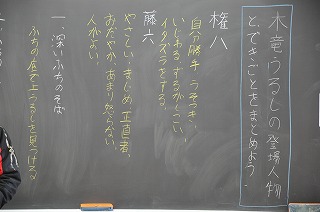 木竜うるしの登場人物
と、できごとをまとめよう。
権八
自分勝手、うそつき、
いじわる、ずるがしこい、
イタズラをする。
藤六
やさしい、まじめ、正直者、
おだやか、あまり怒らない、
人がよい。
一、深いふちのそば
ふちの底で上うるしを見つける。